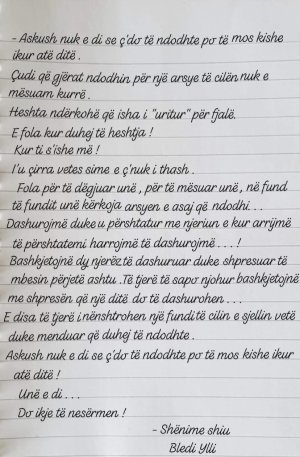 - Askush nuk e di se ç'do të ndodhte po të mos kishe
ikur atë ditë .
Çudi që gjërat ndodhin për një arsye të cilën nuk e
mësuam kurrë.
Heshta ndërkohë që isha i "uritur" për fjalë.
E fola kur duhej të heshtja !
Kur ti s'ishe më !
I'u çirra vetes sime e ç'nuk i thash .
Fola për të dëgjuar unë , për të mësuar unë , në fund
të fundit unë kërkoja arsyen e asaj që ndodhi. . .
Dashurojmë duke u përshtatur me njeriun e kur arrijmë
të përshtatemi harrojmë të dashurojmë . . . !
Bashkjetojnë dy njerëz të dashuruar duke shpresuar të
mbesin përjetë ashtu .Të tjerë të sapo njohur bashkjetojnë
me shpresën që një ditë do të dashurohen . . .
E disa të tjerë i nënshtrohen një funditë cilin e sjellin vetë
duke menduar që duhej të ndodhte .
Askush nuk e di se ç'do të ndodhte po të mos kishe ikur
atë ditë !
Unë e di . . .
Do ikje të nesërmen !
- Shënime shiu
Bledi Ylli